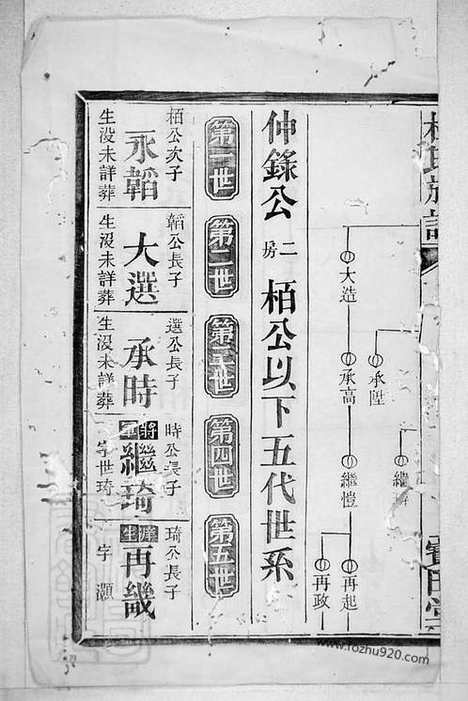 大造
承高
承陞
繼愷
再起
再政
仲錄公二房栢公以下五代世系
第一世
第二世
第三世
第四世
第五世
栢公次子
永韜
生没未詳葬
韜公長子
大選
生没未詳葬
選公長子
承時
生没未詳葬
時公長子
將
繼琦
字世琦
琦公長子
庠生
再畿
字灝
www.rozhu920.com